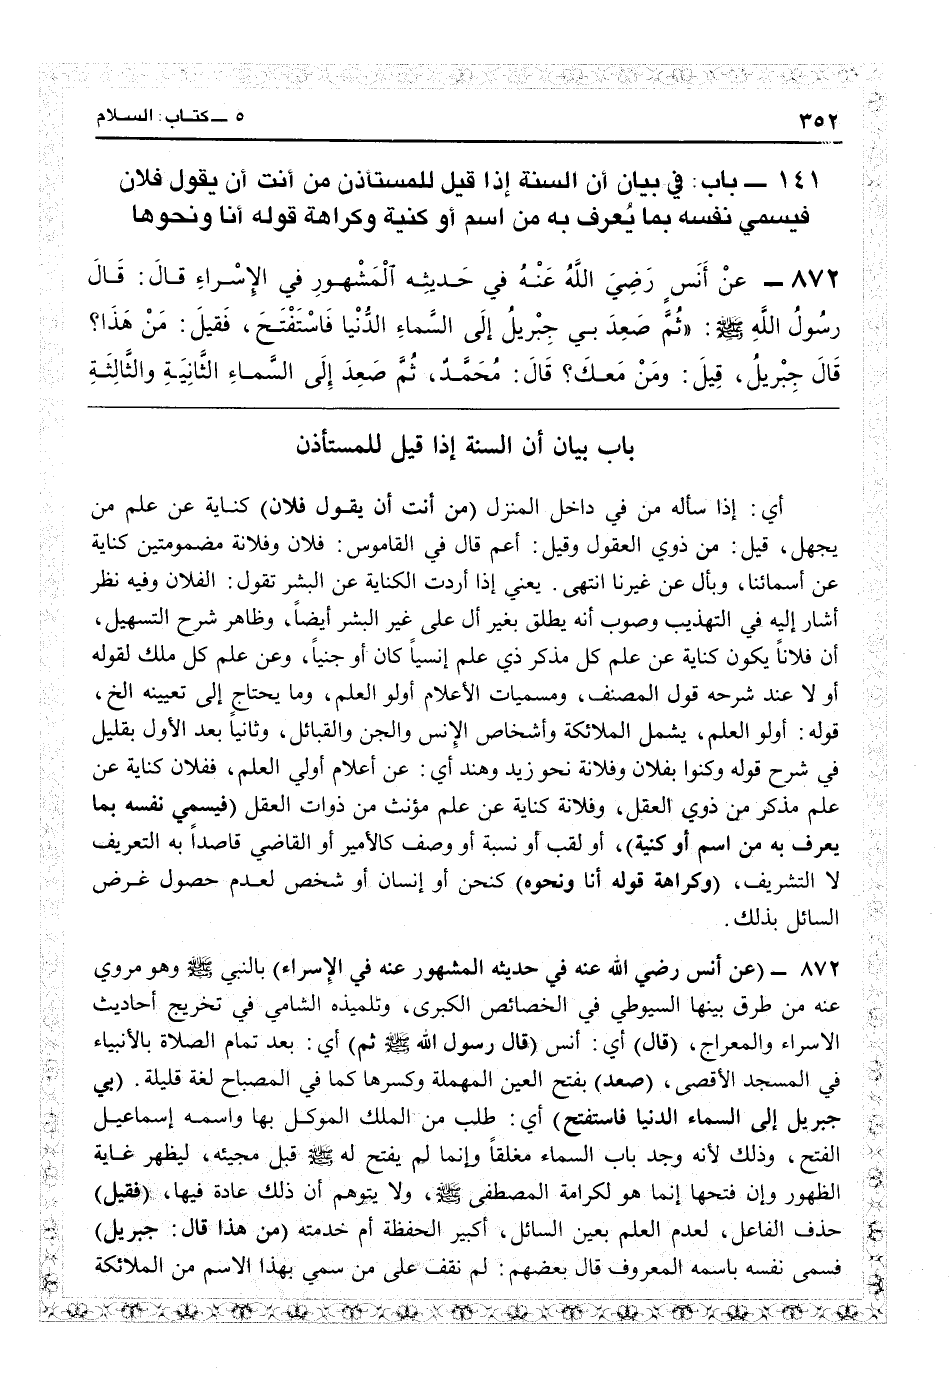 ٣٥٢
٥ ـ كتاب: السلام
١٤١ ـ باب: في بيان أن السنة إذا قيل للمستأذن من أنت أن يقول فلان
فيسمي نفسه بما يُعرف به من اسم أو كنية وكراهة قوله أنا ونحوها
٨٧٢ ـ عنْ أَنَسٍ رَضِيَ اللَّهُ عَنْهُ في حَدِيثِه ٱلْمَشْهُورِ في الإِسْراءِ قالَ: قَالَ
رسُولُ اللَّهِ ﷺ: «ثُمَّ صَعِدَ بي جِبْرِيلُ إلَى السَّماءِ الدُّنْيا فَاسْتَفْتَحَ، فَقيلَ: مَنْ هَذَا؟
قَالَ جِبْرِيلُ، قِيلَ: ومَنْ مَعَكَ؟ قَالَ: مُحَمَّدٌ، ثُمَّ صَعِدَ إلَى السَّماءِ الثَّانِيَةِ والثَّالِثَةِ
باب بيان أن السنة إذا قيل للمستأذن
أي: إذا سأله من في داخل المنزل (من أنت أن يقول فلان) كناية عن علم من
يجهل، قيل: من ذوي العقول وقيل: أعم قال في القاموس: فلان وفلانة مضمومتين كناية
عن أسمائنا، وبأل عن غيرنا انتهى. يعني إذا أردت الكناية عن البشر تقول: الفلان وفيه نظر
أشار إليه في التهذيب وصوب أنه يطلق بغير أل على غير البشر أيضاً، وظاهر شرح التسهيل،
أن فلاناً يكون كناية عن علم كل مذكر ذي علم إنسياً كان أو جنياً، وعن علم كل ملك لقوله
أو لا عند شرحه قول المصنف، ومسميات الأعلام أولو العلم، وما يحتاج إلى تعيينه الخ،
قوله: أولو العلم، يشمل الملائكة وأشخاص الإنس والجن والقبائل، وثانياً بعد الأول بقليل
في شرح قوله وكنوا بفلان وفلانة نحو زيد وهند أي: عن أعلام أولي العلم، ففلان كناية عن
علم مذكر من ذوي العقل، وفلانة كناية عن علم مؤنث من ذوات العقل (فيسمي نفسه بما
يعرف به من اسم أو كنية)، أو لقب أو نسبة أو وصف كالأمير أو القاضي قاصداً به التعريف
لا التشريف، (وكراهة قوله أنا ونحوه) كنحن أو إنسان أو شخص لعدم حصول غرض
السائل بذلك.
٨٧٢ ـ (عن أنس رضي الله عنه في حديثه المشهور عنه في الإسراء) بالنبي ﷺ وهو مروي
عنه من طرق بينها السيوطي في الخصائص الكبرى، وتلميذه الشامي في تخريج أحاديث
الاسراء والمعراج، (قال) أي: أنس (قال رسول الله ﷺ ثم) أي: بعد تمام الصلاة بالأنبياء
في المسجد الأقصى، (صعد) بفتح العين المهملة وكسرها كما في المصباح لغة قليلة. (بي
جبريل إلى السماء الدنيا فاستفتح) أي: طلب من الملك الموكل بها واسمه إسماعيل
الفتح، وذلك لأنه وجد باب السماء مغلقاً وإنما لم يفتح له ﷺ قبل مجيئه، ليظهر غاية
الظهور وإن فتحها إنما هو لكرامة المصطفى ﷺ، ولا يتوهم أن ذلك عادة فيها، (فقيل)
حذف الفاعل، لعدم العلم بعين السائل، أكبير الحفظة أم خدمته (من هذا قال: جبريل)
فسمى نفسه باسمه المعروف قال بعضهم: لم نقف على من سمي بهذا الاسم من الملائكة